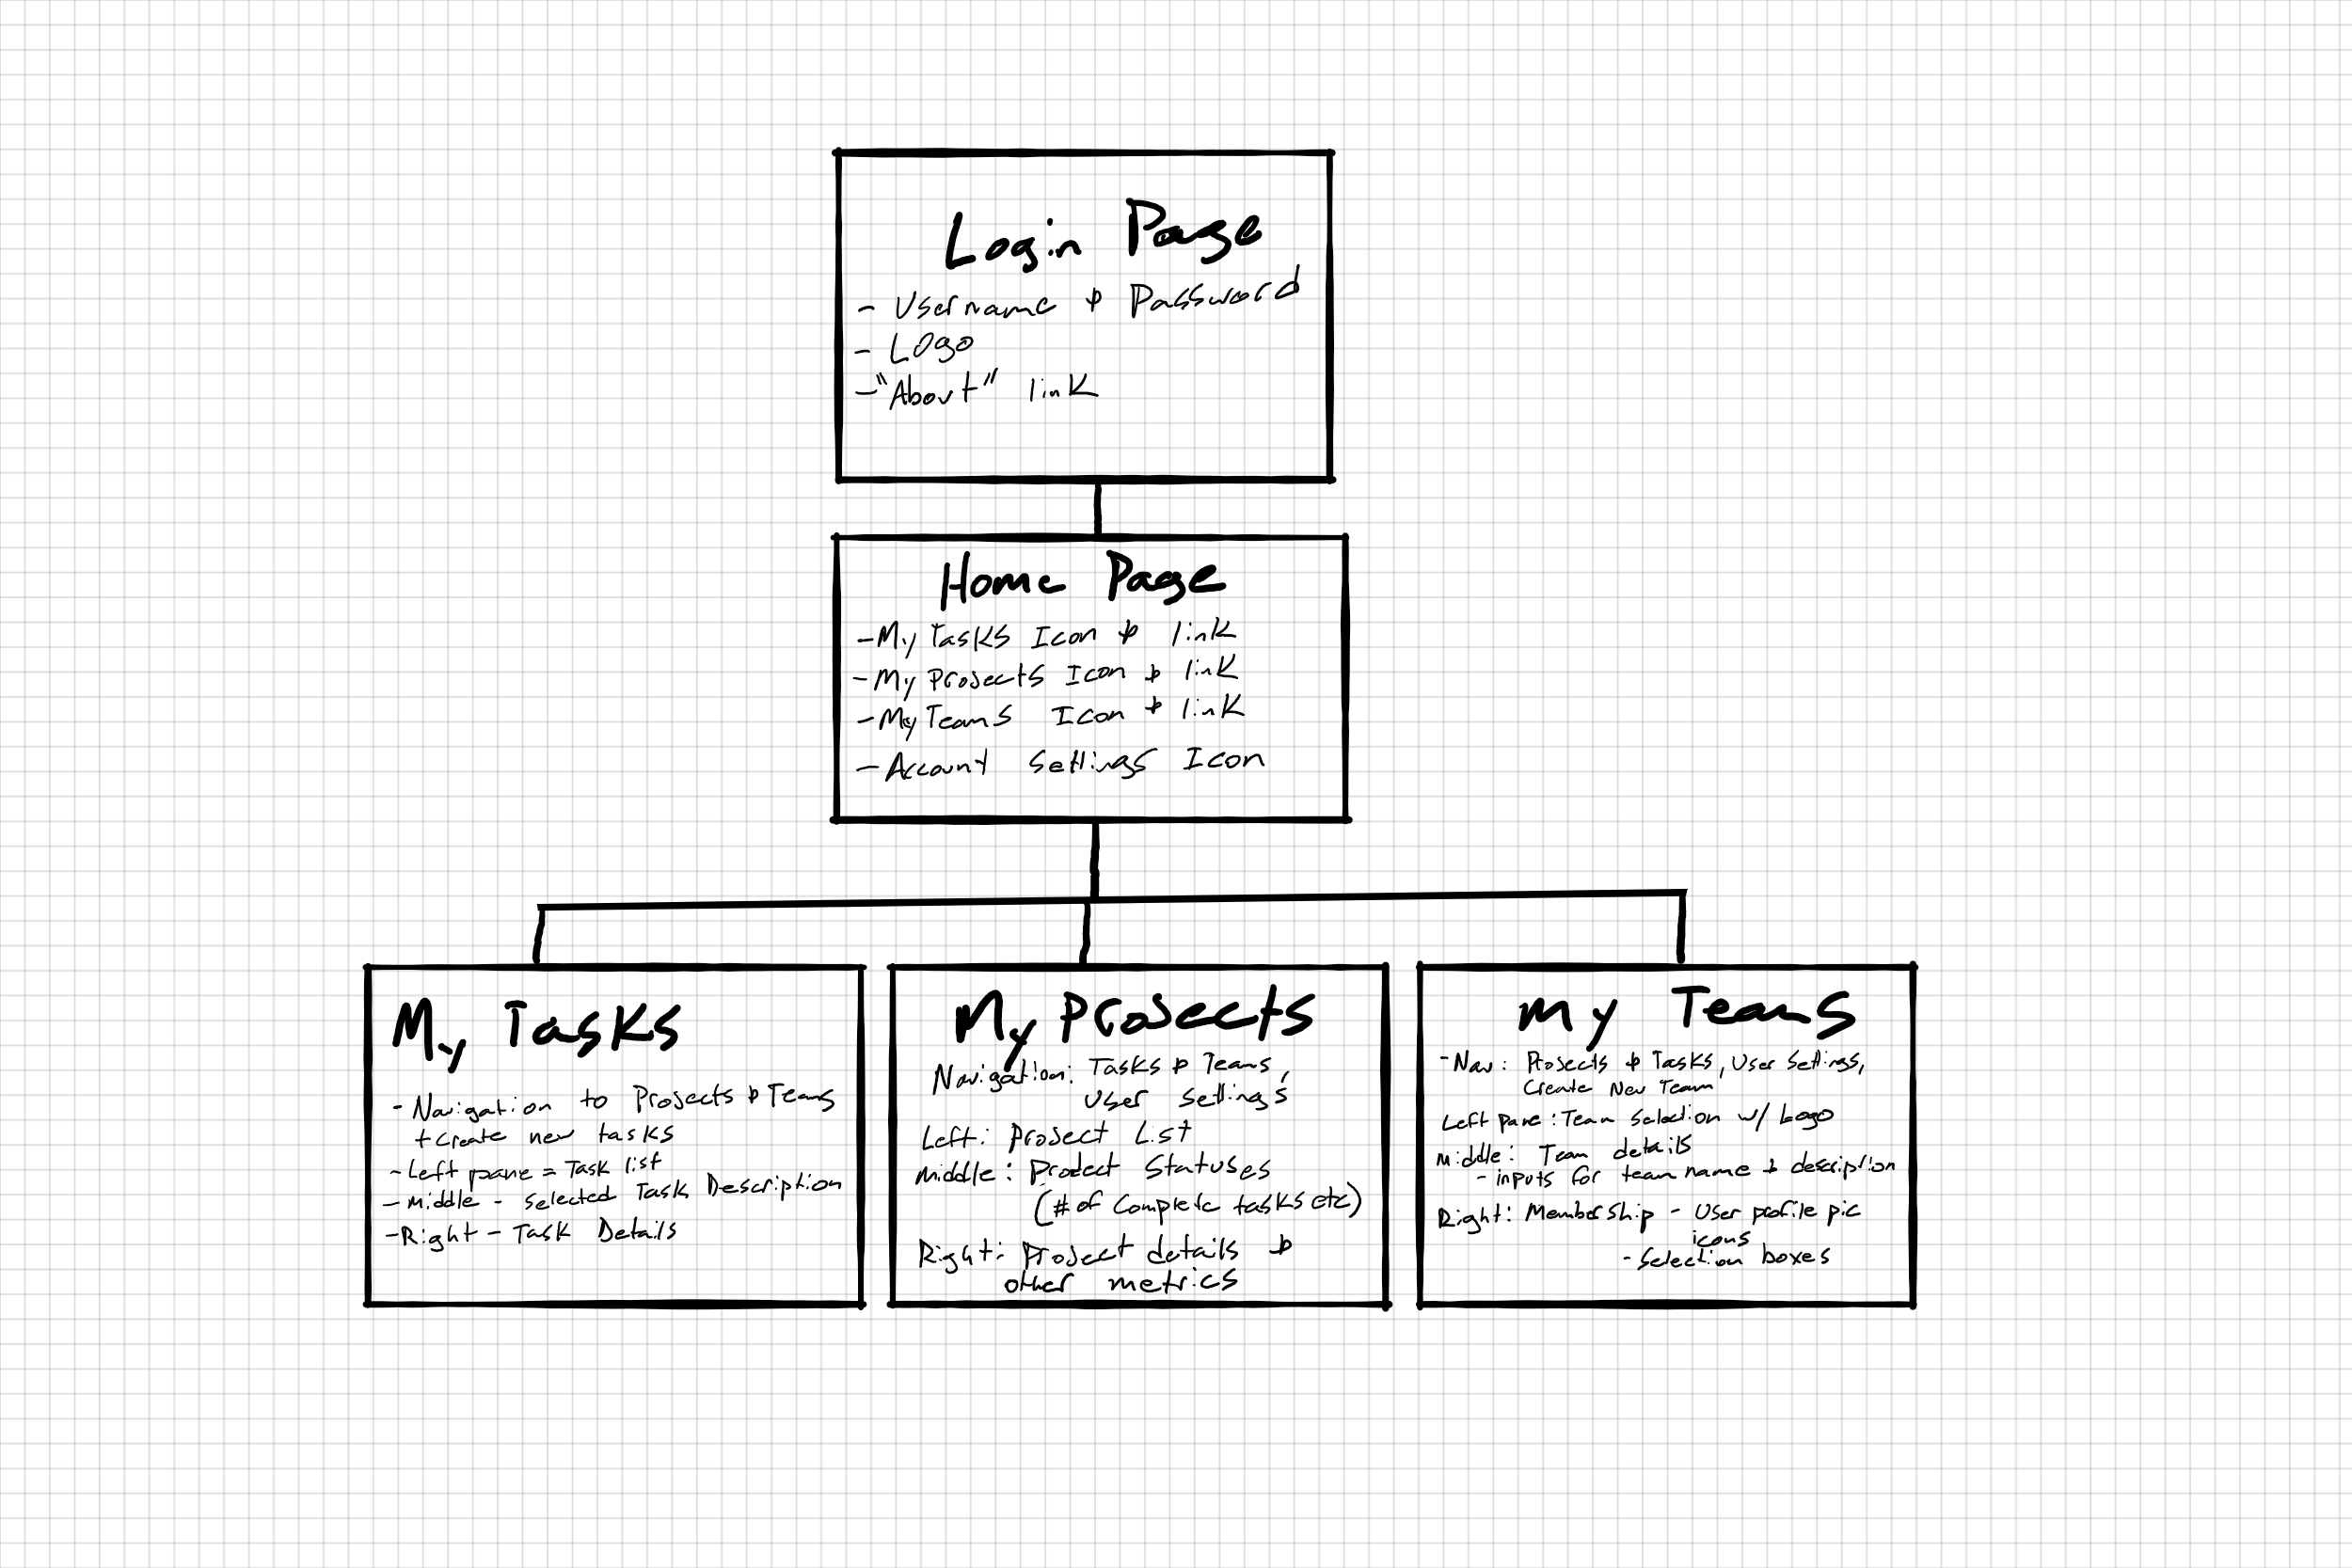 Login Page
- Username & Password
- Logo
- "About" link
Home Page
- My Tasks Icon & link
- My Projects Icon & link
- My Teams Icon & link
- Account Settings Icon
My Tasks
- Navigation to Projects & Teams
+ Create new tasks
- Left pane = Task list
- Middle - Selected Task Description
- Right - Task Details
My Projects
Navigation: Tasks & Teams,
User Settings
Left: Project List
Middle: Project Statuses
(# of Complete tasks etc)
Right: Project details &
other metrics
My Teams
- Nav: Projects & Tasks, User Settings,
Create New Team
Left pane: Team Selection w/ Logo
Middle: Team details
- inputs for team name & description
Right: Membership - User profile pic
icons
- Selection boxes